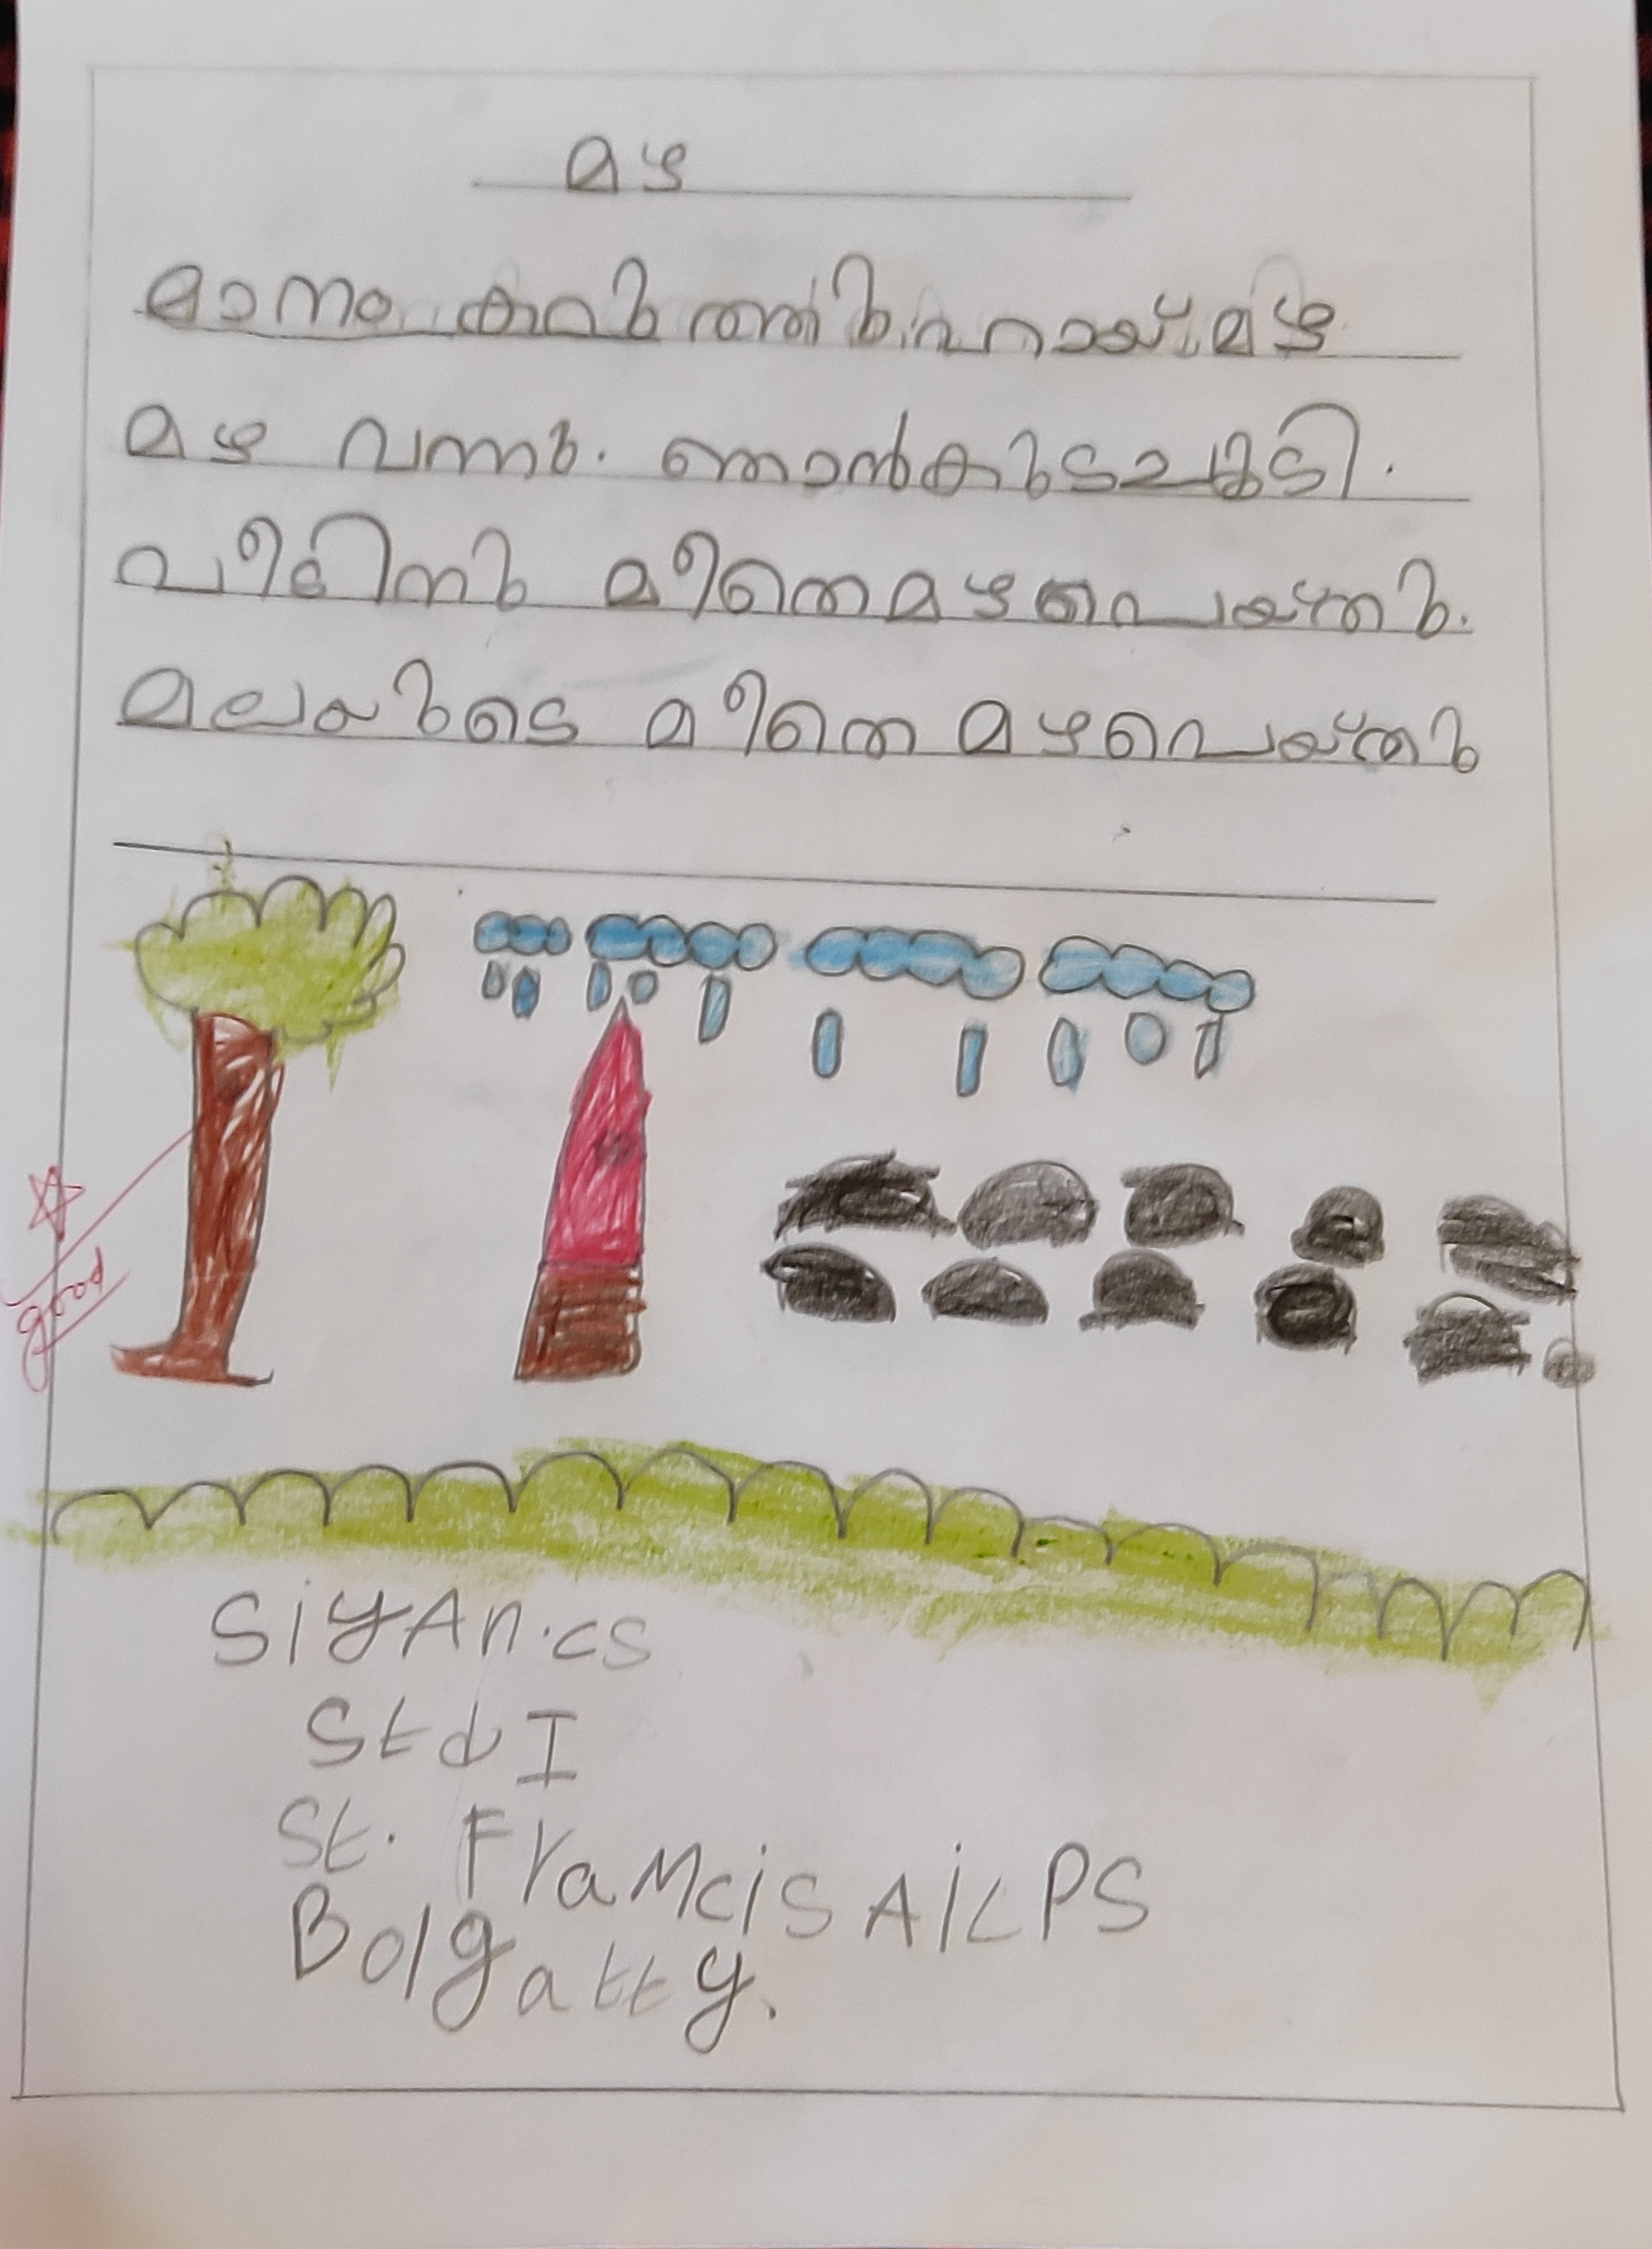 മഴ
മാനം കറുത്തു. വന്നായ് മഴ
മഴ വന്നു. ഞാൻകുടചൂടി.
വീടിനു മീതെമഴപെയ്തു.
മലയുടെ മീതെ മഴപെയ്തു
good
SiyAn.cs
Std I
St. FraNcis AiLPS
Bolgatty.